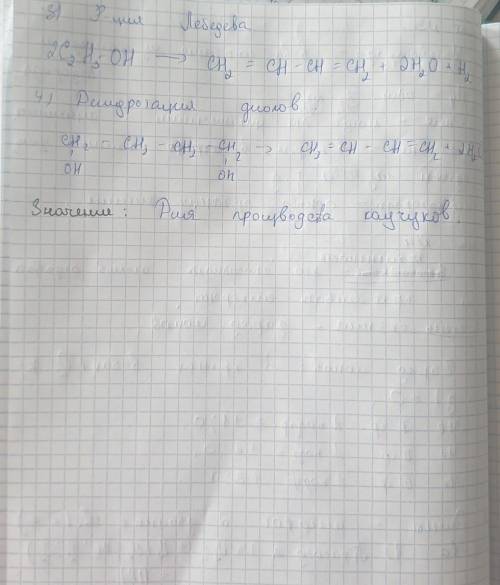 3) Р-ция Лебедева
2C₂H₅OH → CH₂ = CH - CH = CH₂ + 2H₂O + H₂
4) Дегидратация диолов.
CH₂ - CH₂ - CH₂ - CH₂ → CH₂ = CH - CH = CH₂ + 2H₂O
OH OH
Значение: Для производства каучуков.